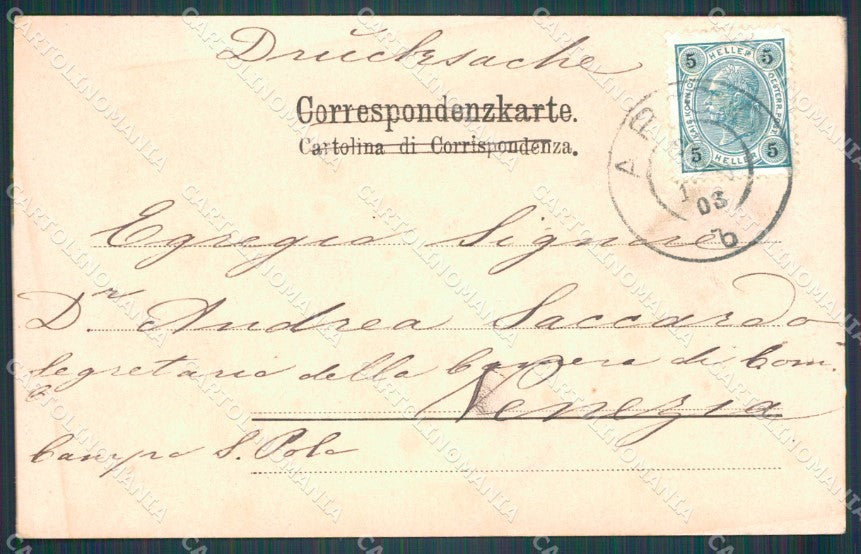 Drucksache
Correspondenzkarte.
Cartolina di Corrispondenza.
5 HELLER 5
KAIS. KOENIGL. OESTERR. POST
5 HELLER 5
03
b
Egregio Signore
Dr Andrea Saccardo
Segretario della Camera di Com.
Venezia
Campo S. Polo
CARTOLINOMANIA